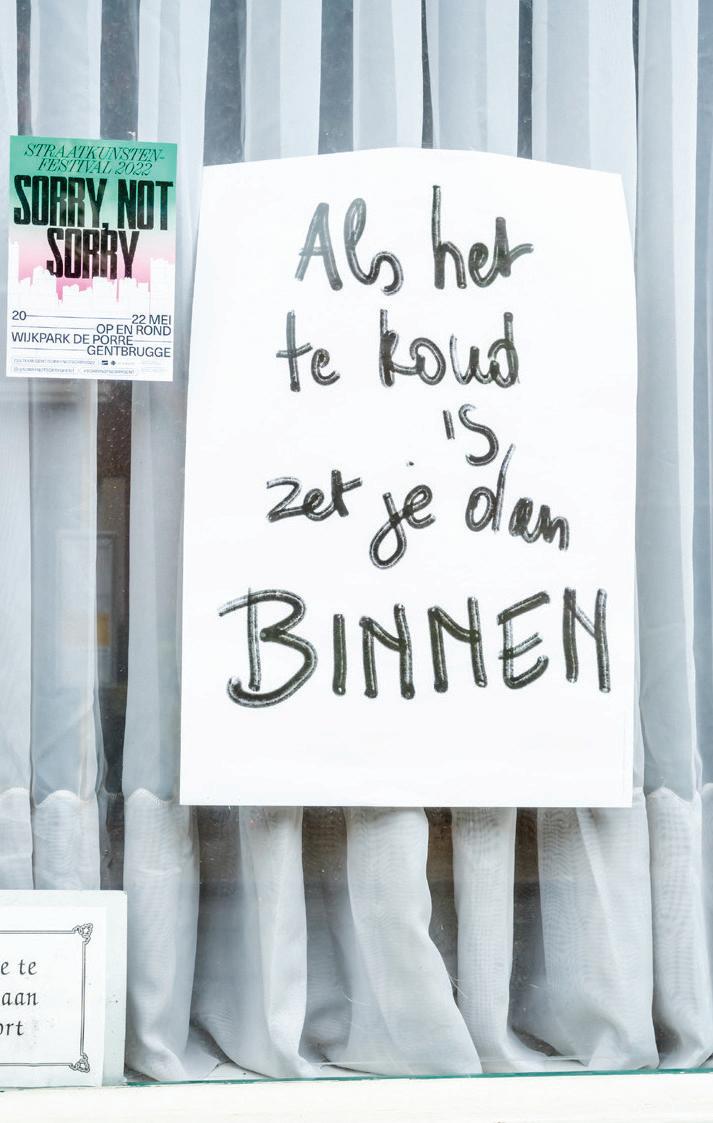 STRAATKUNSTEN-
FESTIVAL 2022
SORRY, NOT
SORRY
20 22 MEI
OP EN ROND
WIJKPARK DE PORRE
GENTBRUGGE
Als het
te koud
is,
zet je dan
BINNEN
e te
aan
ort